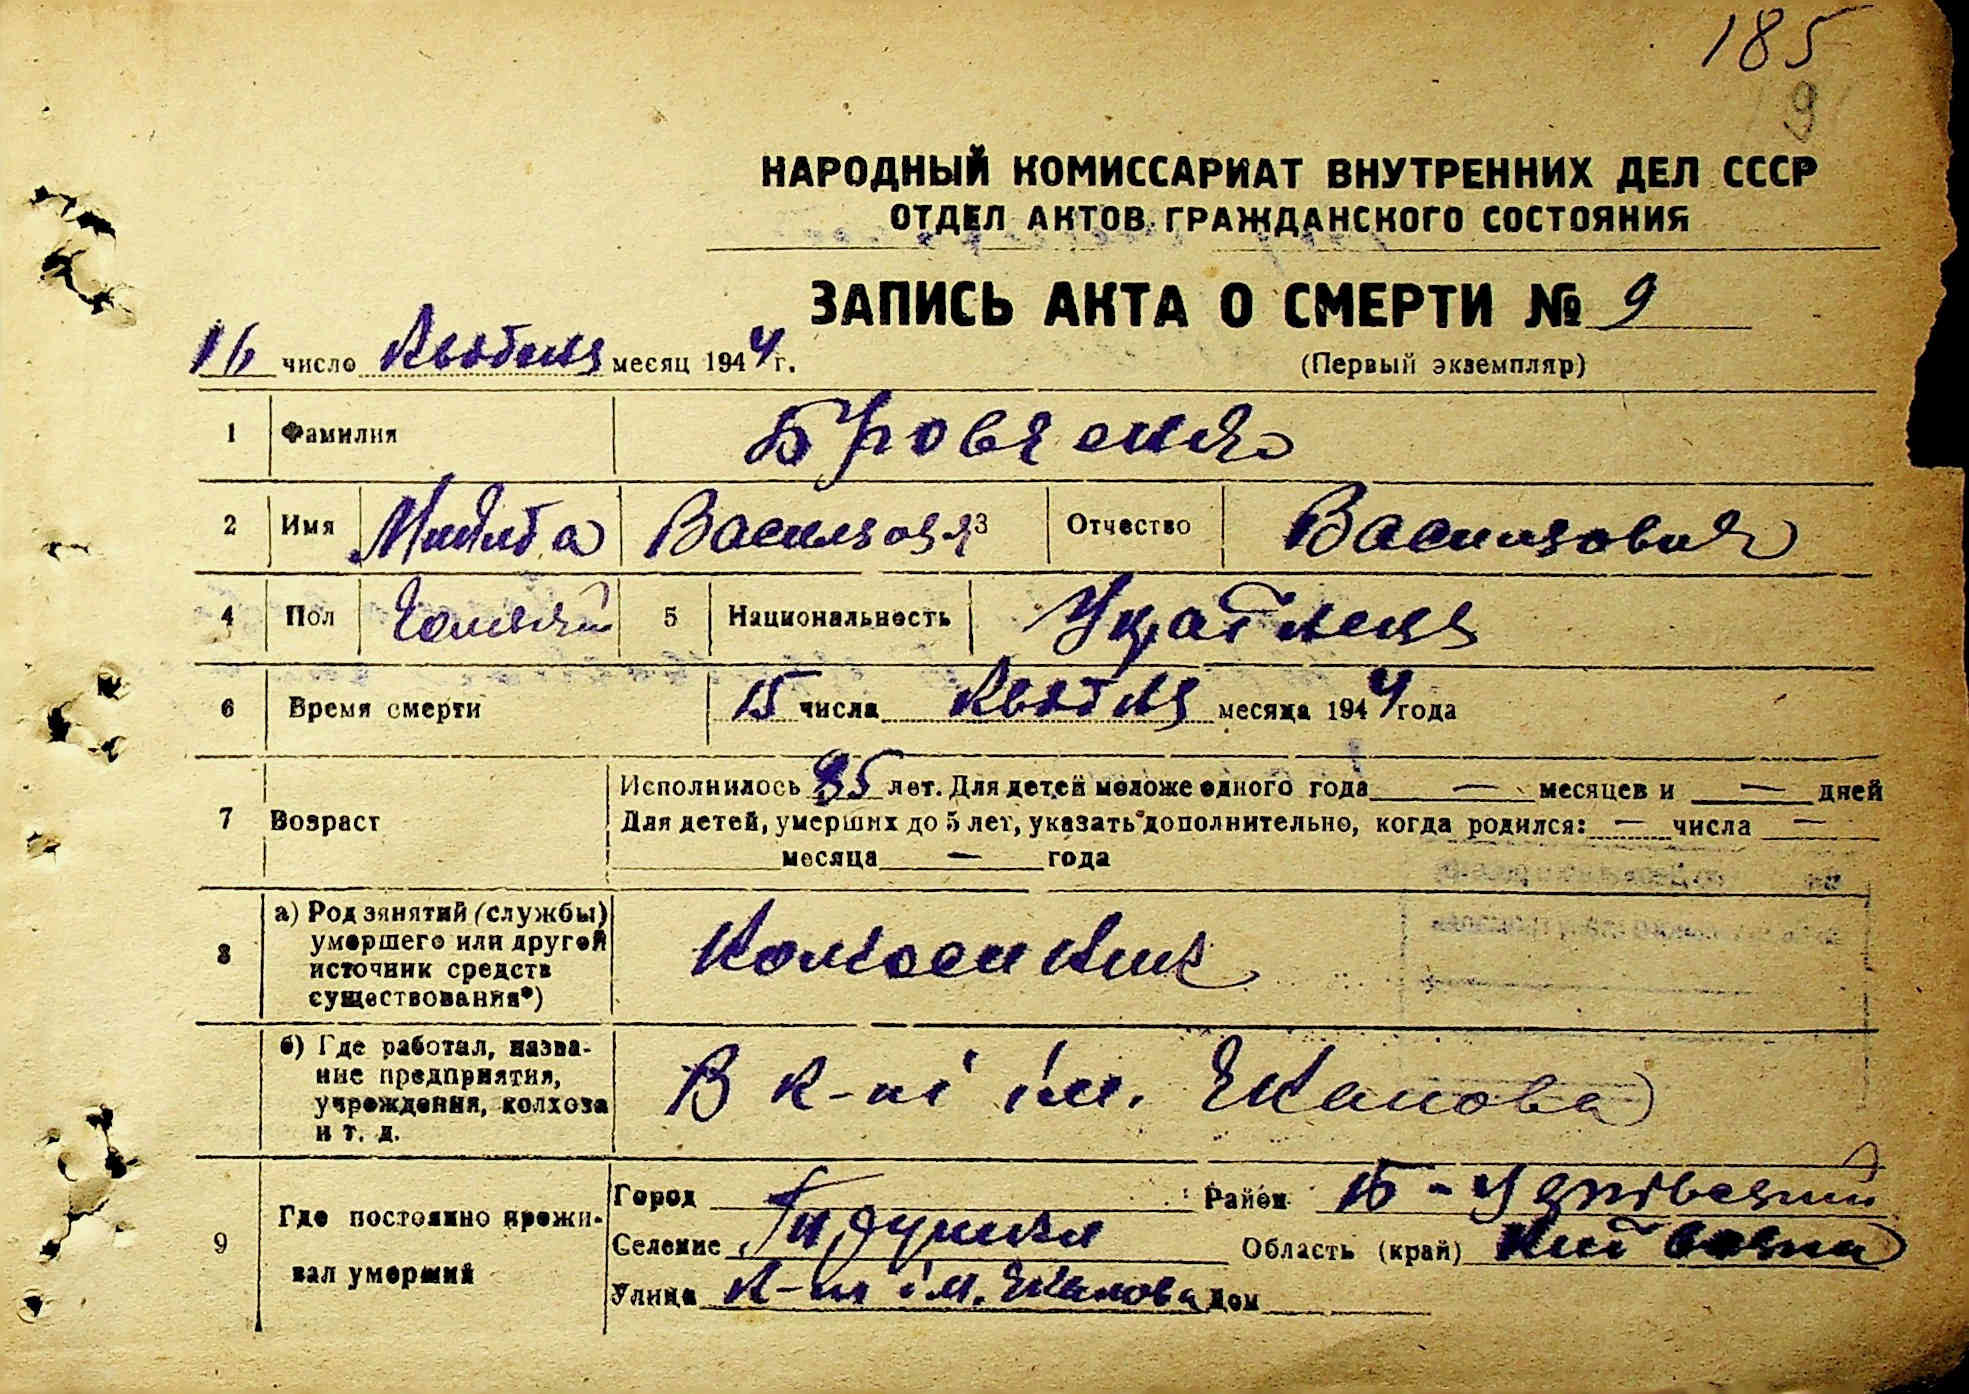 185
9
НАРОДНЫЙ КОМИССАРИАТ ВНУТРЕННИХ ДЕЛ СССР
ОТДЕЛ АКТОВ ГРАЖДАНСКОГО СОСТОЯНИЯ
ЗАПИСЬ АКТА О СМЕРТИ № 9
16 число Квітня месяц 1944 г.
(Первый экземпляр)
1 Фамилия Бровченко
2 Имя Микита 3 Отчество Васильович
4 Пол 5 Национальность Українец
6 Время смерти 15 числа Квітня месяца 1944 года
7 Возраст Исполнилось 35 лет. Для детей моложе одного года — месяцев и — дней
Для детей, умерших до 5 лет, указать дополнительно, когда родился: — числа —
месяца — года
8 а) Род занятий (службы) умершего или другой источник средств существования*) Колгоспник
б) Где работал, название предприятия, учреждения, колхоза и т. д. В к-пі ім. Жданова
9 Где постоянно проживал умерший
Город Район Б-Церківский
Селение Область (край) Київська
Улица К-п ім. Жданова дом